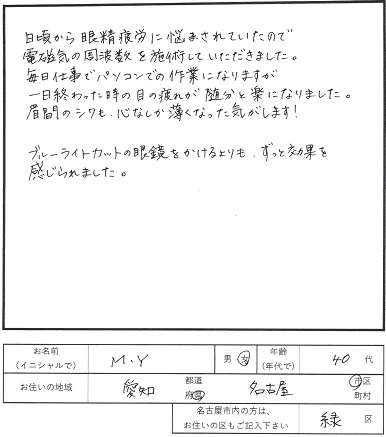 日頃から眼精疲労に悩まされていたので
電磁気の周波数を施術していただきました。
毎日仕事でパソコンでの作業になりますが
一日終わった時の目の疲れが随分と楽になりました。
眉間のシワも、心なしか薄くなった気がします!
ブルーライトカットの眼鏡をかけるよりも、ずっと効果を
感じられました。
お名前
(イニシャルで)
M.Y
男・女
年齢
(年代で)
40 代
お住いの地域
愛知
都道
府県
名古屋
市区
町村
名古屋市内の方は、
お住いの区もご記入下さい
緑 区